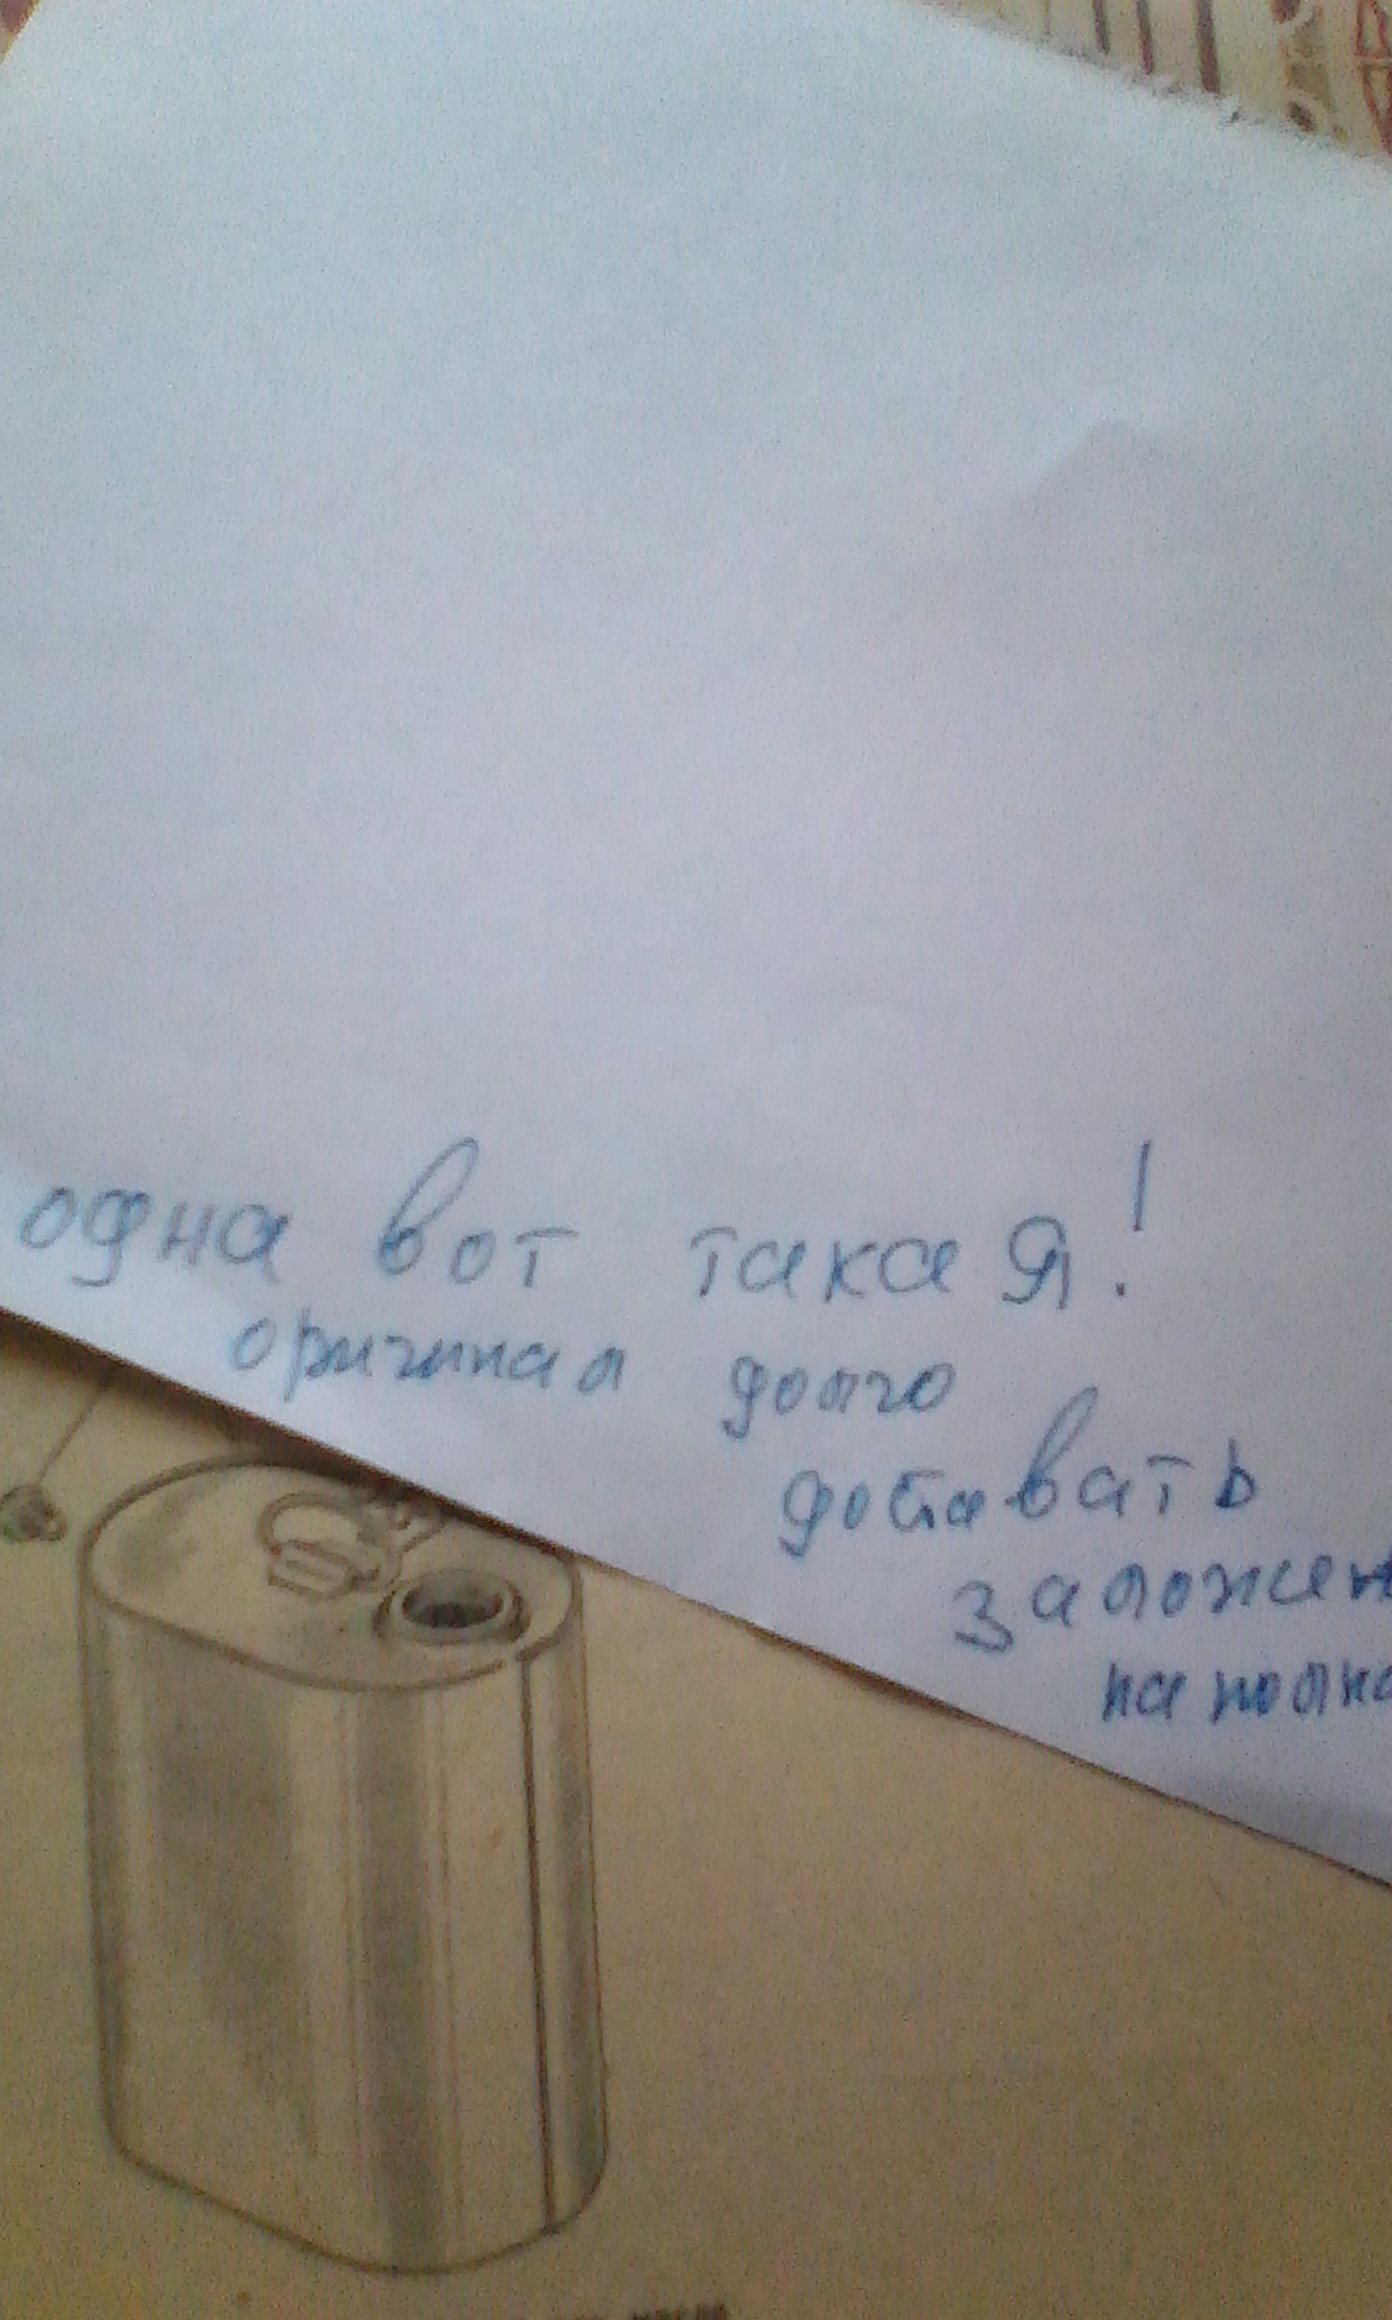 одна вот такая!
оригинал долго
доставать
заложен
на полно